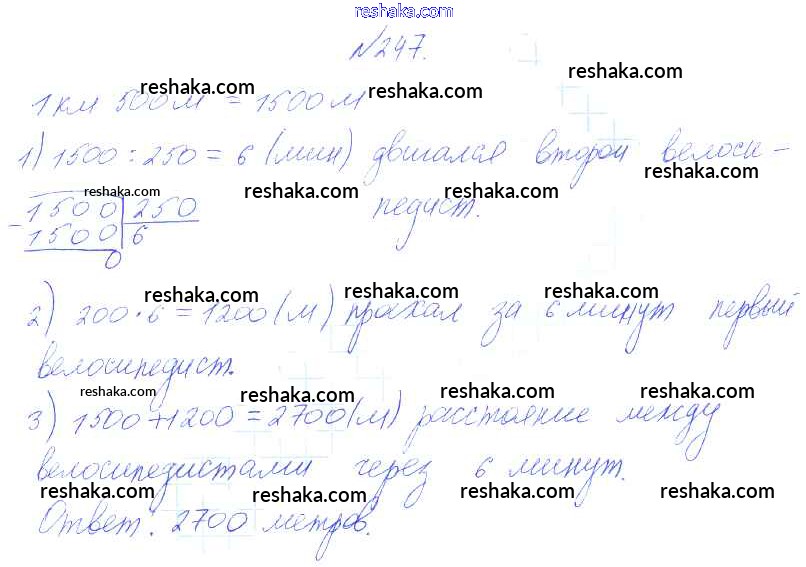 reshaka.com
№247.
1 км 500 м = 1500 м
reshaka.com reshaka.com reshaka.com
1) 1500 : 250 = 6 (мин) двигался второй велоси-
reshaka.com
педист.
reshaka.com reshaka.com reshaka.com
- 1500 250
1500 6
0
reshaka.com reshaka.com
reshaka.com reshaka.com reshaka.com reshaka.com
2) 200 · 6 = 1200 (м) проехал за 6 минут первый
велосипедист.
reshaka.com reshaka.com reshaka.com reshaka.com
3) 1500 + 1200 = 2700 (м) расстояние между
велосипедистами через 6 минут.
reshaka.com reshaka.com reshaka.com reshaka.com
Ответ: 2700 метров.